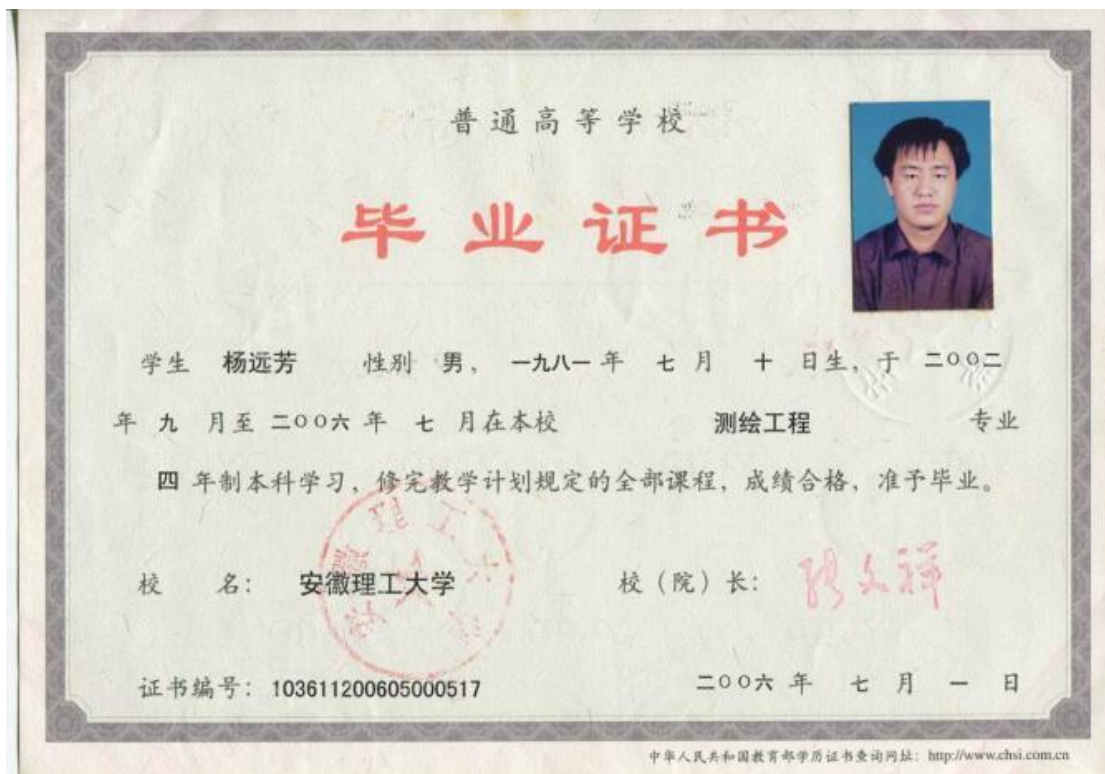 普通高等学校
毕业证书
学生 杨远芳 性别 男， 一九八一 年 七 月 十 日生，于 二○○二
年 九 月至 二○○六 年 七 月在本校 测绘工程 专业
四 年制本科学习，修完教学计划规定的全部课程，成绩合格，准予毕业。
校 名： 安徽理工大学 校（院）长： 张文祥
证书编号： 103611200605000517 二○○六 年 七 月 一 日
中华人民共和国教育部学历证书查询网址：http://www.chsi.com.cn